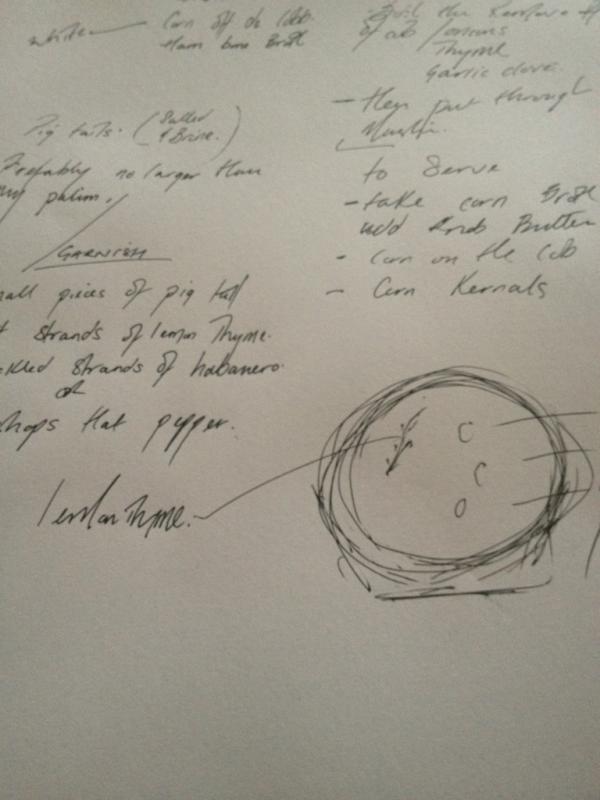 white — Corn off de Cobb.
Ham bone Broth
Pig tails. (Salted & Brine.)
Preferably no larger than
my palm.
GARNISH
mall pieces of pig tail
strands of lemon Thyme.
ckled strands of habanero.
or
hops hat pepper.
lemon Thyme.
Boil the
of cob / onions
Thyme
Garlic clove.
- then put through
Muslin.
to Serve
- take corn Broth
add Knob Butter
- Corn on the Cob
- Corn Kernals